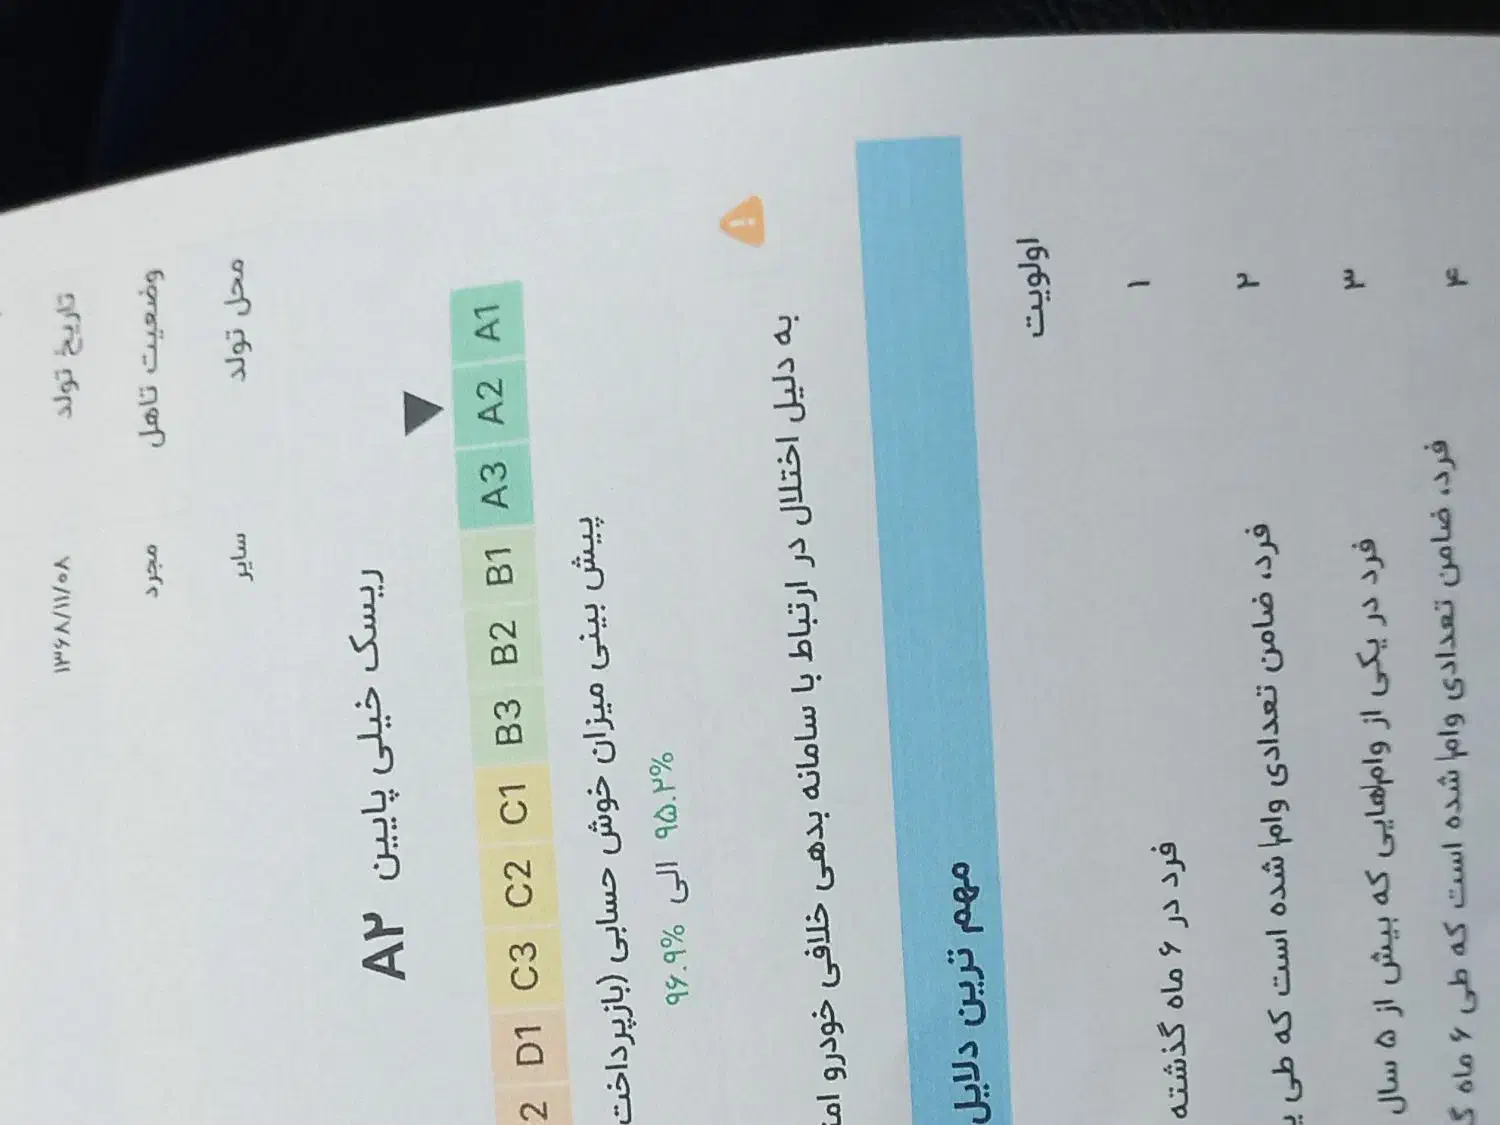 تاریخ تولد ۱۳۶۸/۱۱/۰۸
وضعیت تاهل مجرد
محل تولد سایر
ریسک خیلی پایین A۲
A1 A2 A3 B1 B2 B3 C1 C2 C3 D1 2
پیش بینی میزان خوش حسابی (بازپرداخت
۹۵.۲% الی ۹۶.۹%
به دلیل اختلال در ارتباط با سامانه بدهی خلافی خودرو
مهم ترین دلایل
اولویت
۱ فرد در ۶ ماه گذشته
۲ فرد، ضامن تعدادی وام شده است که طی
۳ فرد در یکی از وام‌هایی که بیش از ۵ سال
۴ فرد، ضامن تعدادی وام شده است که طی ۶ ماه